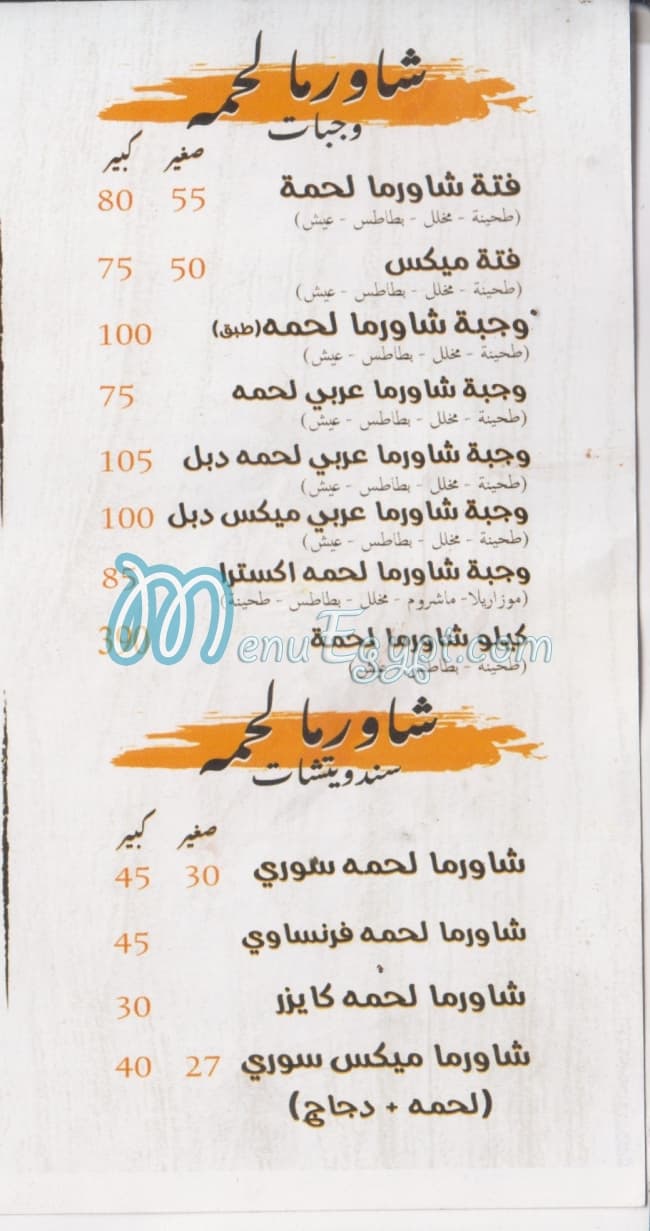 شاورما لحمه
وجبات
صغير كبير
فتة شاورما لحمة 55 80
(طحينة - مخلل - بطاطس - عيش)
فتة ميكس 50 75
(طحينة - مخلل - بطاطس - عيش)
وجبة شاورما لحمه (طبق) 100
(طحينة - مخلل - بطاطس - عيش)
وجبة شاورما عربي لحمه 75
(طحينة - مخلل - بطاطس - عيش)
وجبة شاورما عربي لحمه دبل 105
(طحينة - مخلل - بطاطس - عيش)
وجبة شاورما عربي ميكس دبل 100
(طحينة - مخلل - بطاطس - عيش)
وجبة شاورما لحمه اكسترا 85
(موزاريلا- ماشروم - مخلل - بطاطس - طحينة)
كيلو شاورما لحمة 390
(طحينه - بطاطس - عيش)
MenuEgypt.com
شاورما لحمه
سندويتشات
صغير كبير
شاورما لحمه سوري 30 45
شاورما لحمه فرنساوي 45
شاورما لحمه كايزر 30
شاورما ميكس سوري 27 40
(لحمه + دجاج)